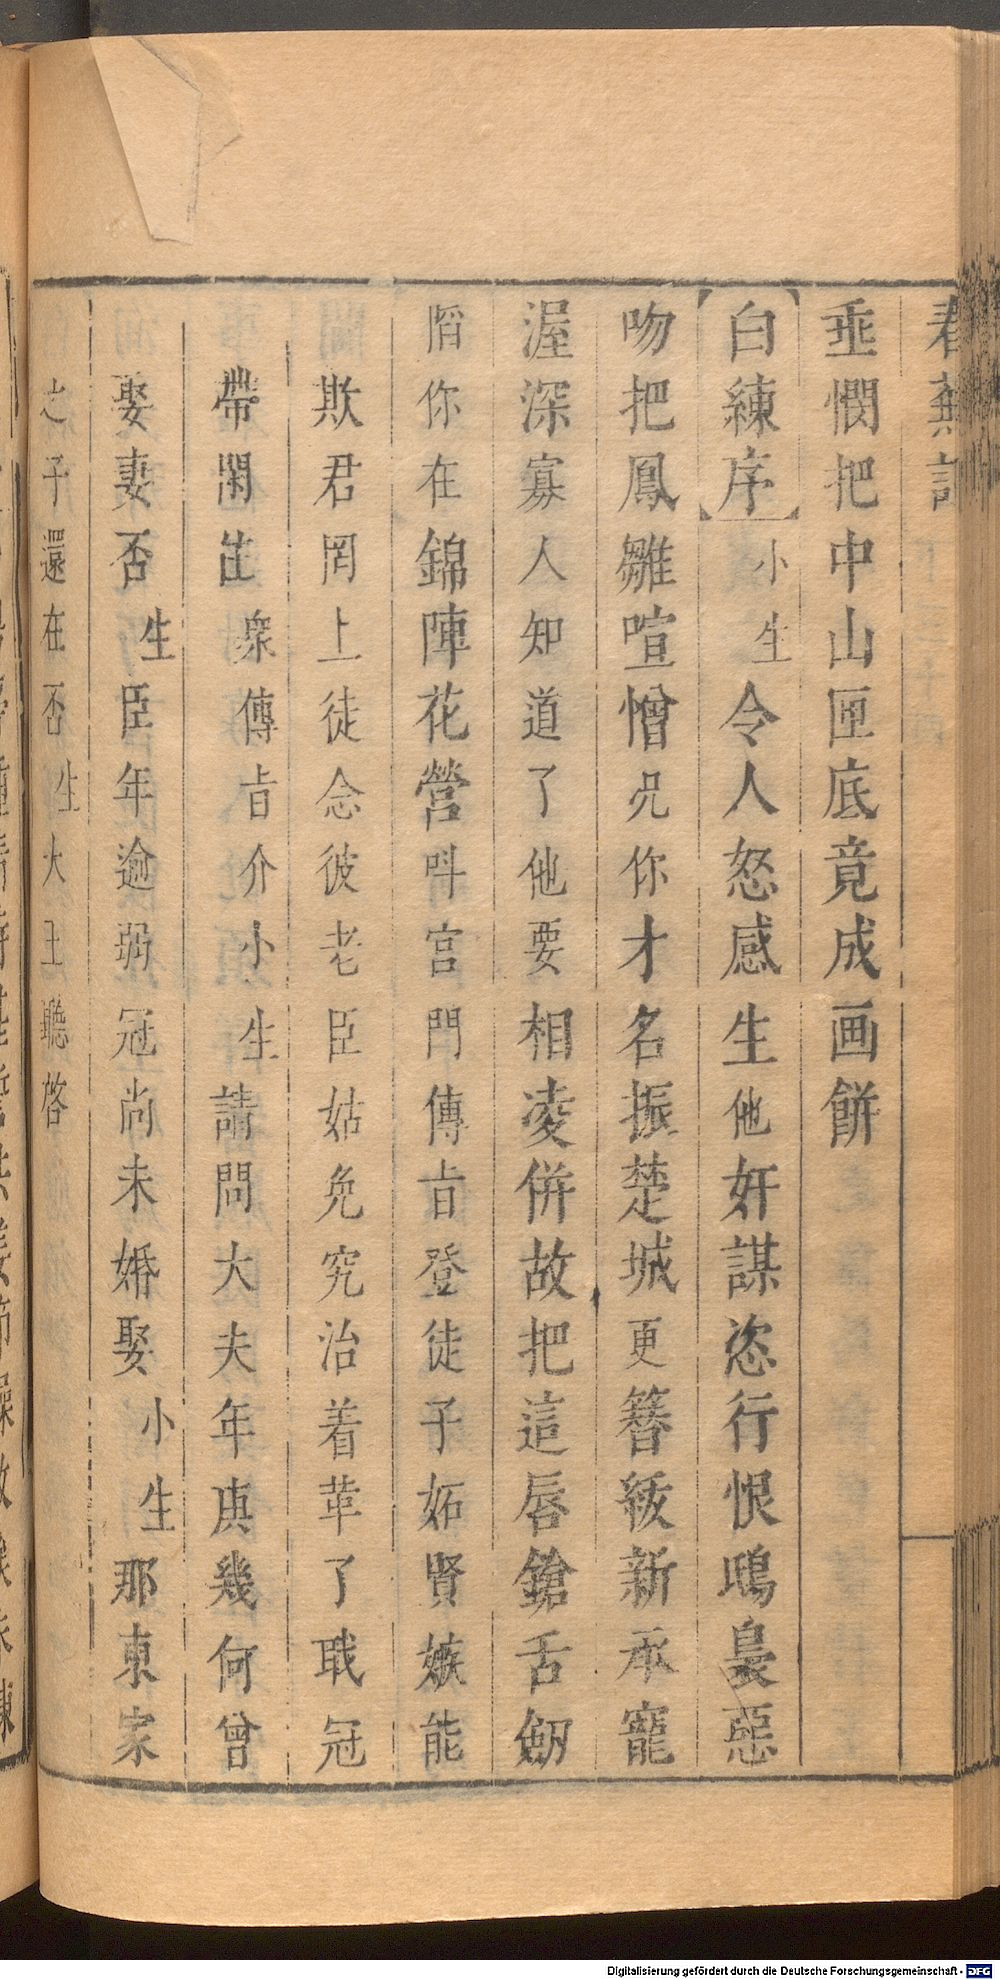 春蕪記
垂憫把中山匣底竟成画餅
白練序 小生 令人怒感生他奸謀恣行恨鴟梟惡
吻把鳳雛喧憎况你才名振楚城更簪紱新承寵
渥深寡人知道了他要相凌併故把這唇鎗舌劒
陷你在錦陣花營叫宮門傳旨登徒子妬賢嫉能
欺君罔上徒念彼老臣姑免究治着革了職冠
帶閑住 衆傳旨介小生 請問大夫年庚幾何曾
娶妻否 生 臣年逾弱冠尚未婚娶 小生 那東家
之子還在否 生 大王聽啓
Digitalisierung gefördert durch die Deutsche Forschungsgemeinschaft - DFG